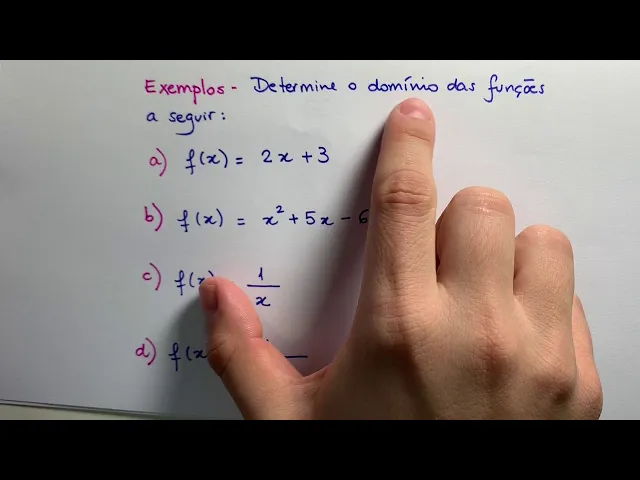 Exemplos - Determine o domínio das funções
a seguir:
a) f(x) = 2x + 3
b) f(x) = x² + 5x - 6
c) f(x) 1/x
d) f(x